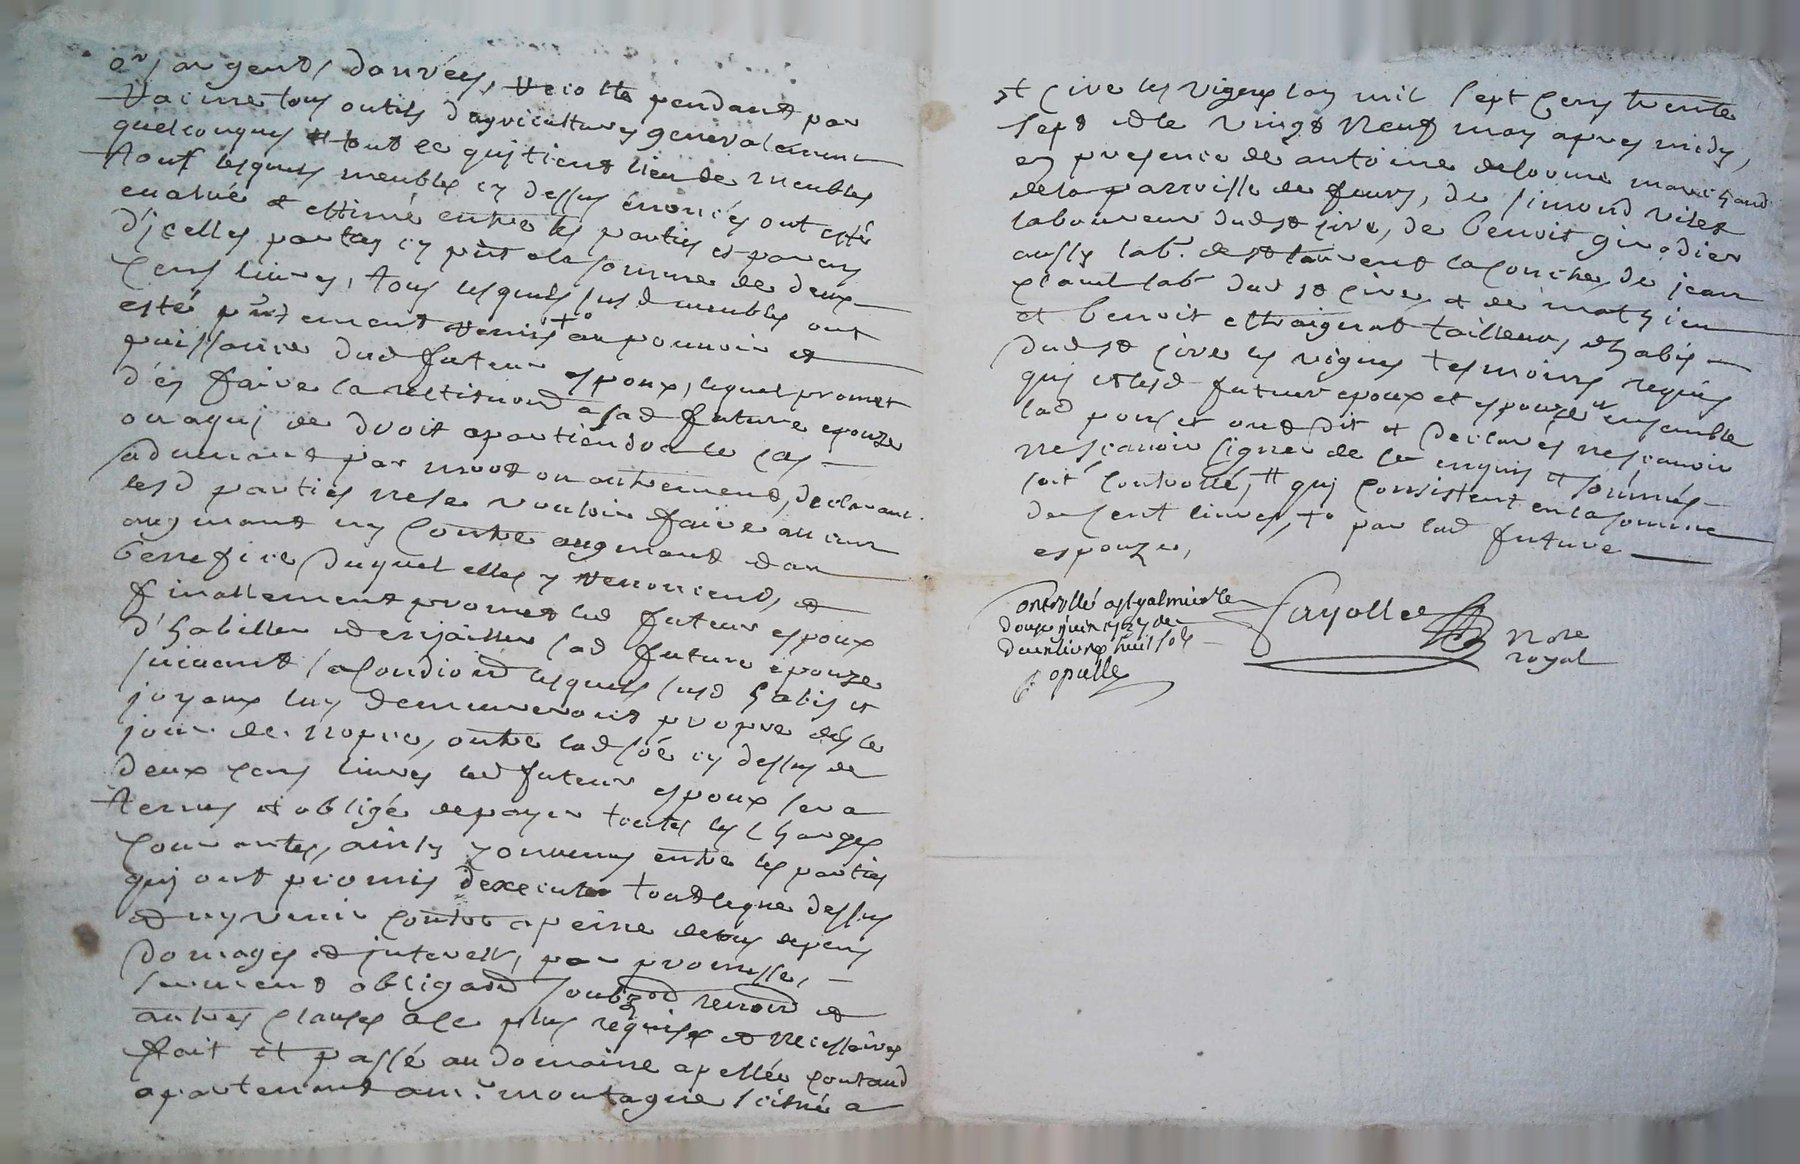 or, argent, danrées, recolte pendant par
racine tous outils d'agriculture generalement
quelconques et tout ce quj tient lieu de meubles
tous lesquels meubles cy dessus énoncés ont esté
evalué et estimé entre les parties et par en
d'jcelles parties cy pnt a la somme de deux
cens livres, tous lesquels susd meubles ont
esté pntement remis +° au pouvoir et
puissance dud futeur espoux, lequel promet
d'en faire la restituon a lad future epouze
ou a quj de droit apartiendra le cas
advenant par mort ou autrement, declarant
lesd parties ne se vouloir faire aucun
augment ny contre augment au
benefice duquel elles y renoncent, et
finallement promet led futeur espoux
d'habiller et enjoailler lad future epouze
suivant sa condion lesquels susd habis et
joyaux luy demeureront propre dès le
jour de nopce, outre lad soe cy dessus de
deux cens livres led futeur espoux sera
tenus et obligé de payer toutes les charges
courantes, ainsy convenus entre les parties
quj ont promis d'executer tout ce que dessus
et ny venir contre a peine de tous depens
domages et jnterest, par promesse,
serment obligaon soubzon renon et
autres clauses a ce plus requises et necessaires
fait et passé au domaine apellée coutand
apartenant a mr. montagne scitué a
st cire les vignes lan mil sept cens trente
sept et le vingt neuf may apres midy,
en presence de antoine delorme marchand
de la parroisse de feurs, de simond vilet
laboureur dudst cire, de benoit girodier
aussy labr. de st laurent la conche, de jean
claud labr dud st cire et de mathieu
et benoit chtaignat tailleurs, dhabis
dudst cire les vignes tesmoins requis
quj et lesd futeur epoux et espouze ensemble
lad pons et ont dit et declarés nesçavoir
nesçavoir signer de ce enquis et sommés
soit controllé, # quj consistent en la somme
de cent livres, +° par lad future
espouze,
Fayolle Nore
royal
Controllé a st galmier le
douze juin 1737 de
deux livres huit sols
copulle